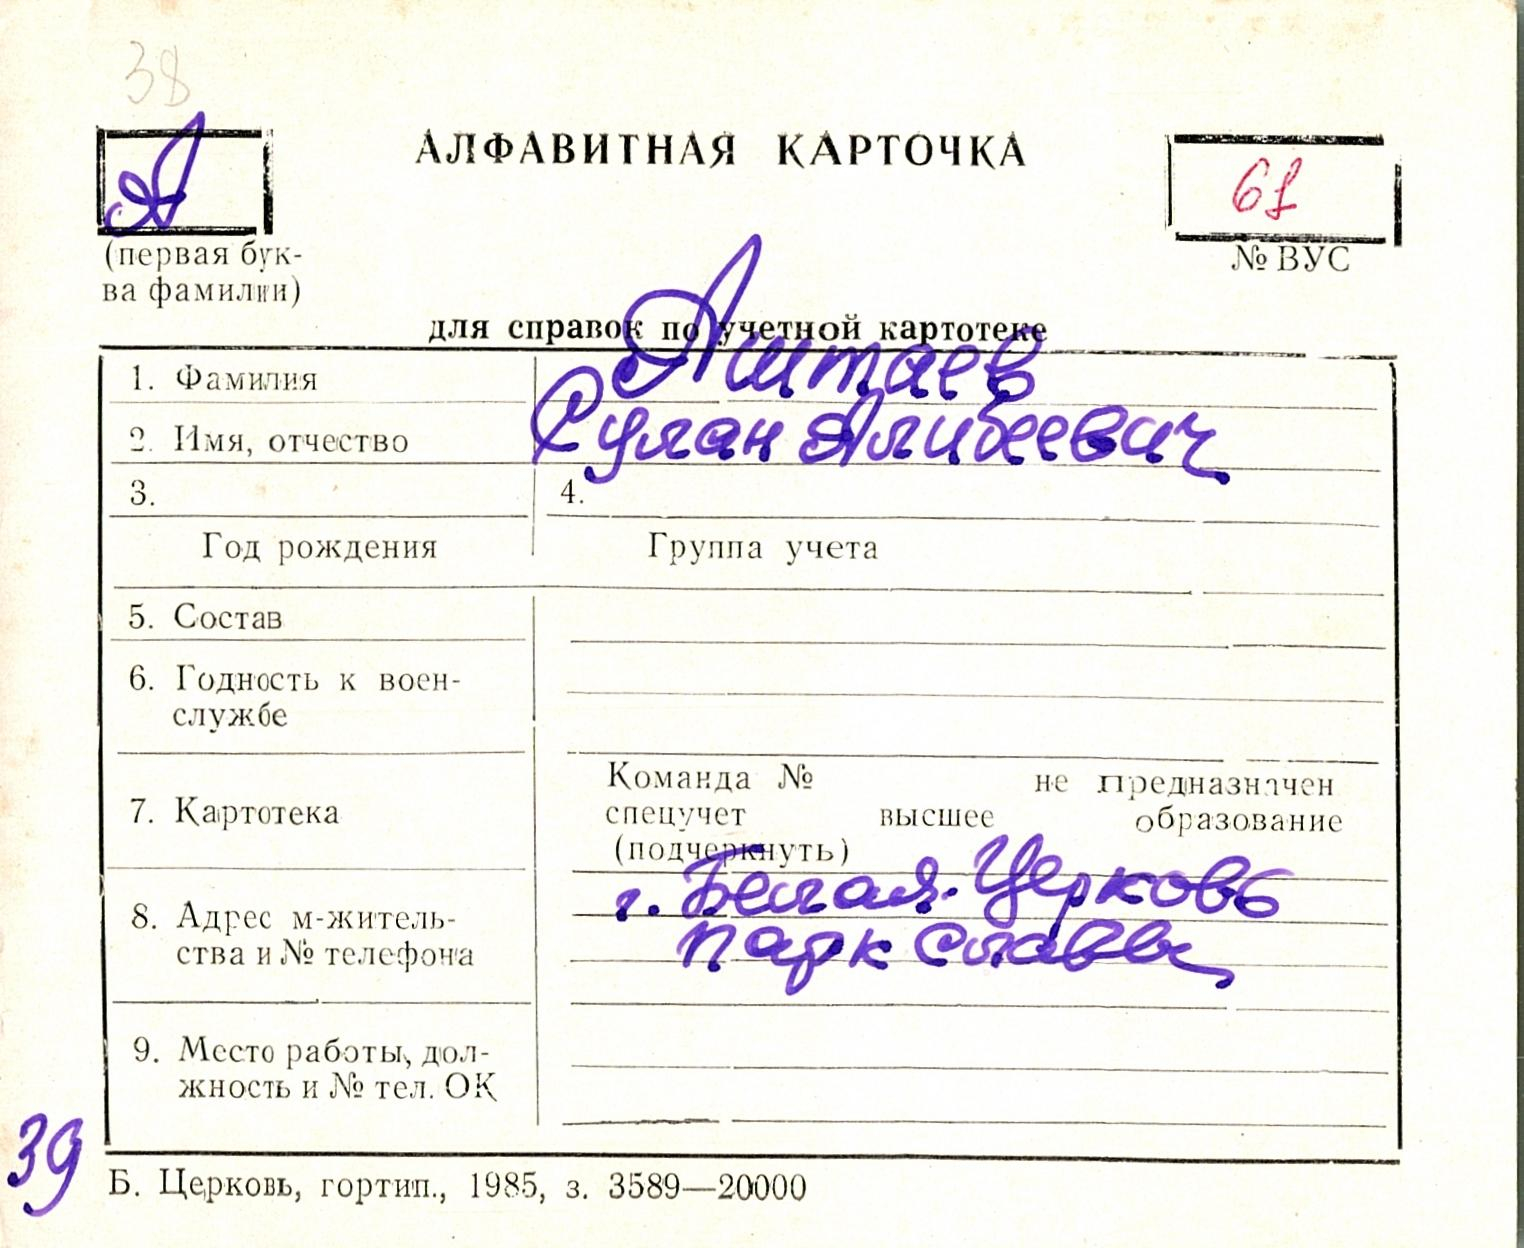 38
А
АЛФАВИТНАЯ КАРТОЧКА
61
(первая бук-
ва фамилии)
№ ВУС
для справок по учетной картотеке
1. Фамилия Аштаев
2. Имя, отчество Сулан Алибеевич
3. 4.
Год рождения Группа учета
5. Состав
6. Годность к воен-
службе
7. Картотека
Команда № не предназначен
спецучет высшее образование
(подчеркнуть)
8. Адрес м-житель-
ства и № телефона
г. Белая-Церковь
парк Славы
9. Место работы, дол-
жность и № тел. ОК
39
Б. Церковь, гортип., 1985, з. 3589—20000